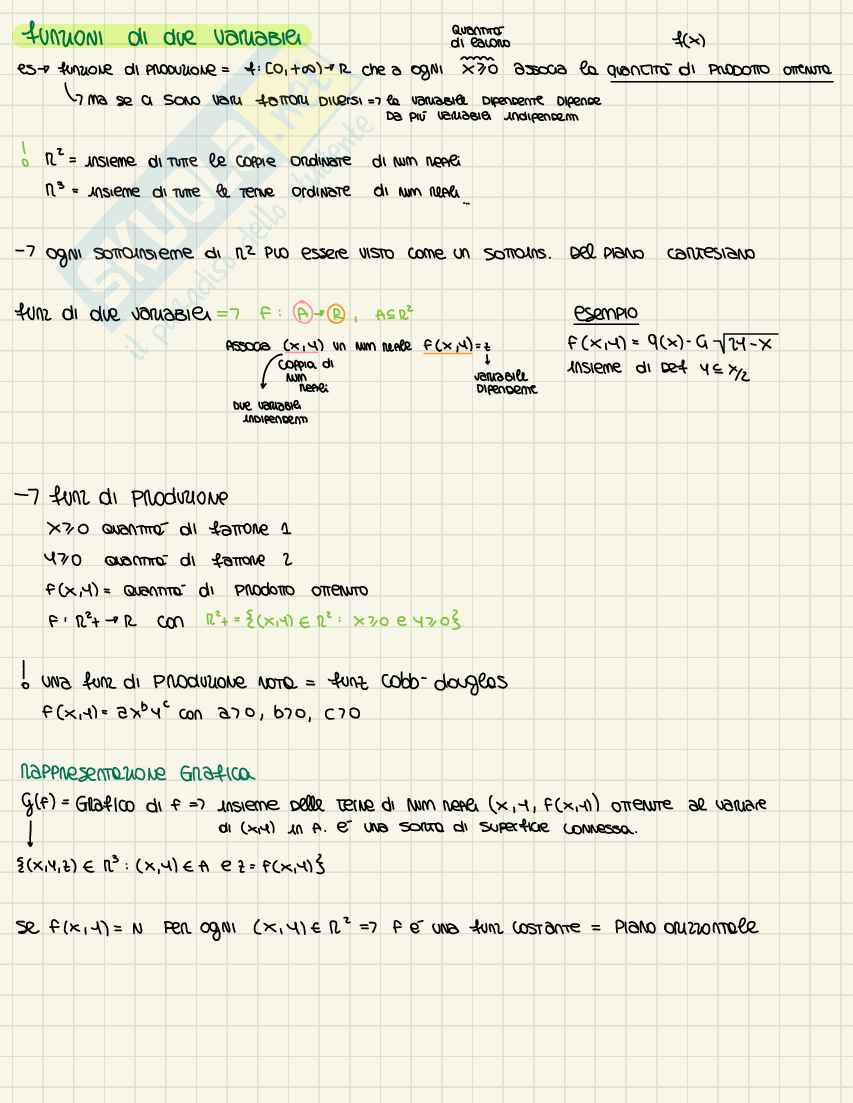 funzioni di due variabili
es → funzione di produzione = f: [0,+∞) → R che a ogni x≥0 associa la quantità di prodotto ottenuta
quantità di lavoro
f(x)
↳ ma se ci sono vari fattori diversi => la variabile dipendente dipende
da più variabili indipendenti
! R² = insieme di tutte le coppie ordinate di num reali
R³ = insieme di tutte le terne ordinate di num reali...
→ ogni sottoinsieme di R² può essere visto come un sottoins. del piano cartesiano
funz di due variabili => f: A → R, A⊆R²
associa (x,y) un num reale f(x,y)=z
coppia di
num
reali
due variabili
indipendenti
variabile
dipendente
esempio
f(x,y) = 9(x) - G √2y-x
insieme di def y ≤ x/2
→ funz di produzione
x≥0 quantità di fattore 1
y≥0 quantità di fattore 2
f(x,y) = quantità di prodotto ottenuto
f: R²+ → R con R²+ = {(x,y) ∈ R² : x≥0 e y≥0}
! una funz di produzione nota = funz cobb-douglas
f(x,y) = axᵇyᶜ con a>0, b>0, c>0
rappresentazione grafica
G(f) = Grafico di f => insieme delle terne di num reali (x, y, f(x,y)) ottenute al variare
di (x,y) in A. è una sorta di superficie connessa.
{(x,y,z) ∈ R³ : (x,y) ∈ A e z = f(x,y)}
se f(x,y) = N per ogni (x,y) ∈ R² => f è una funz costante = piano orizzontale
SKUOLA.net
il paradiso dello studente